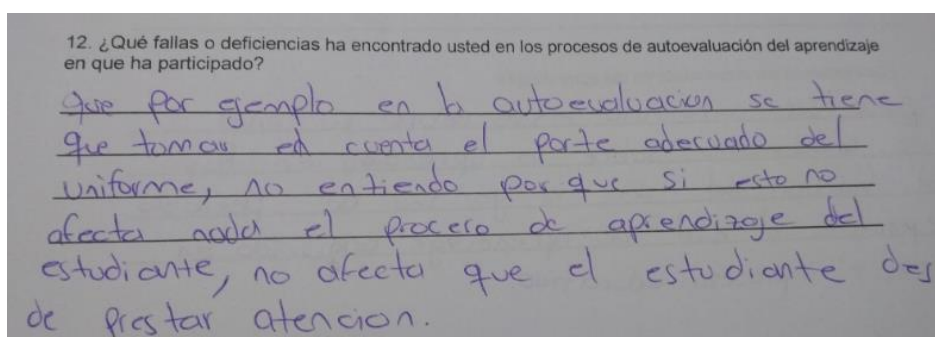 12. ¿Qué fallas o deficiencias ha encontrado usted en los procesos de autoevaluación del aprendizaje
en que ha participado?
que por ejemplo en la autoevaluacion se tiene
que tomar en cuenta el porte adecuado del
uniforme, no entiendo por que si esto no
afecta nada el proceso de aprendizaje del
estudiante, no afecta que el estudiante
de prestar atencion.